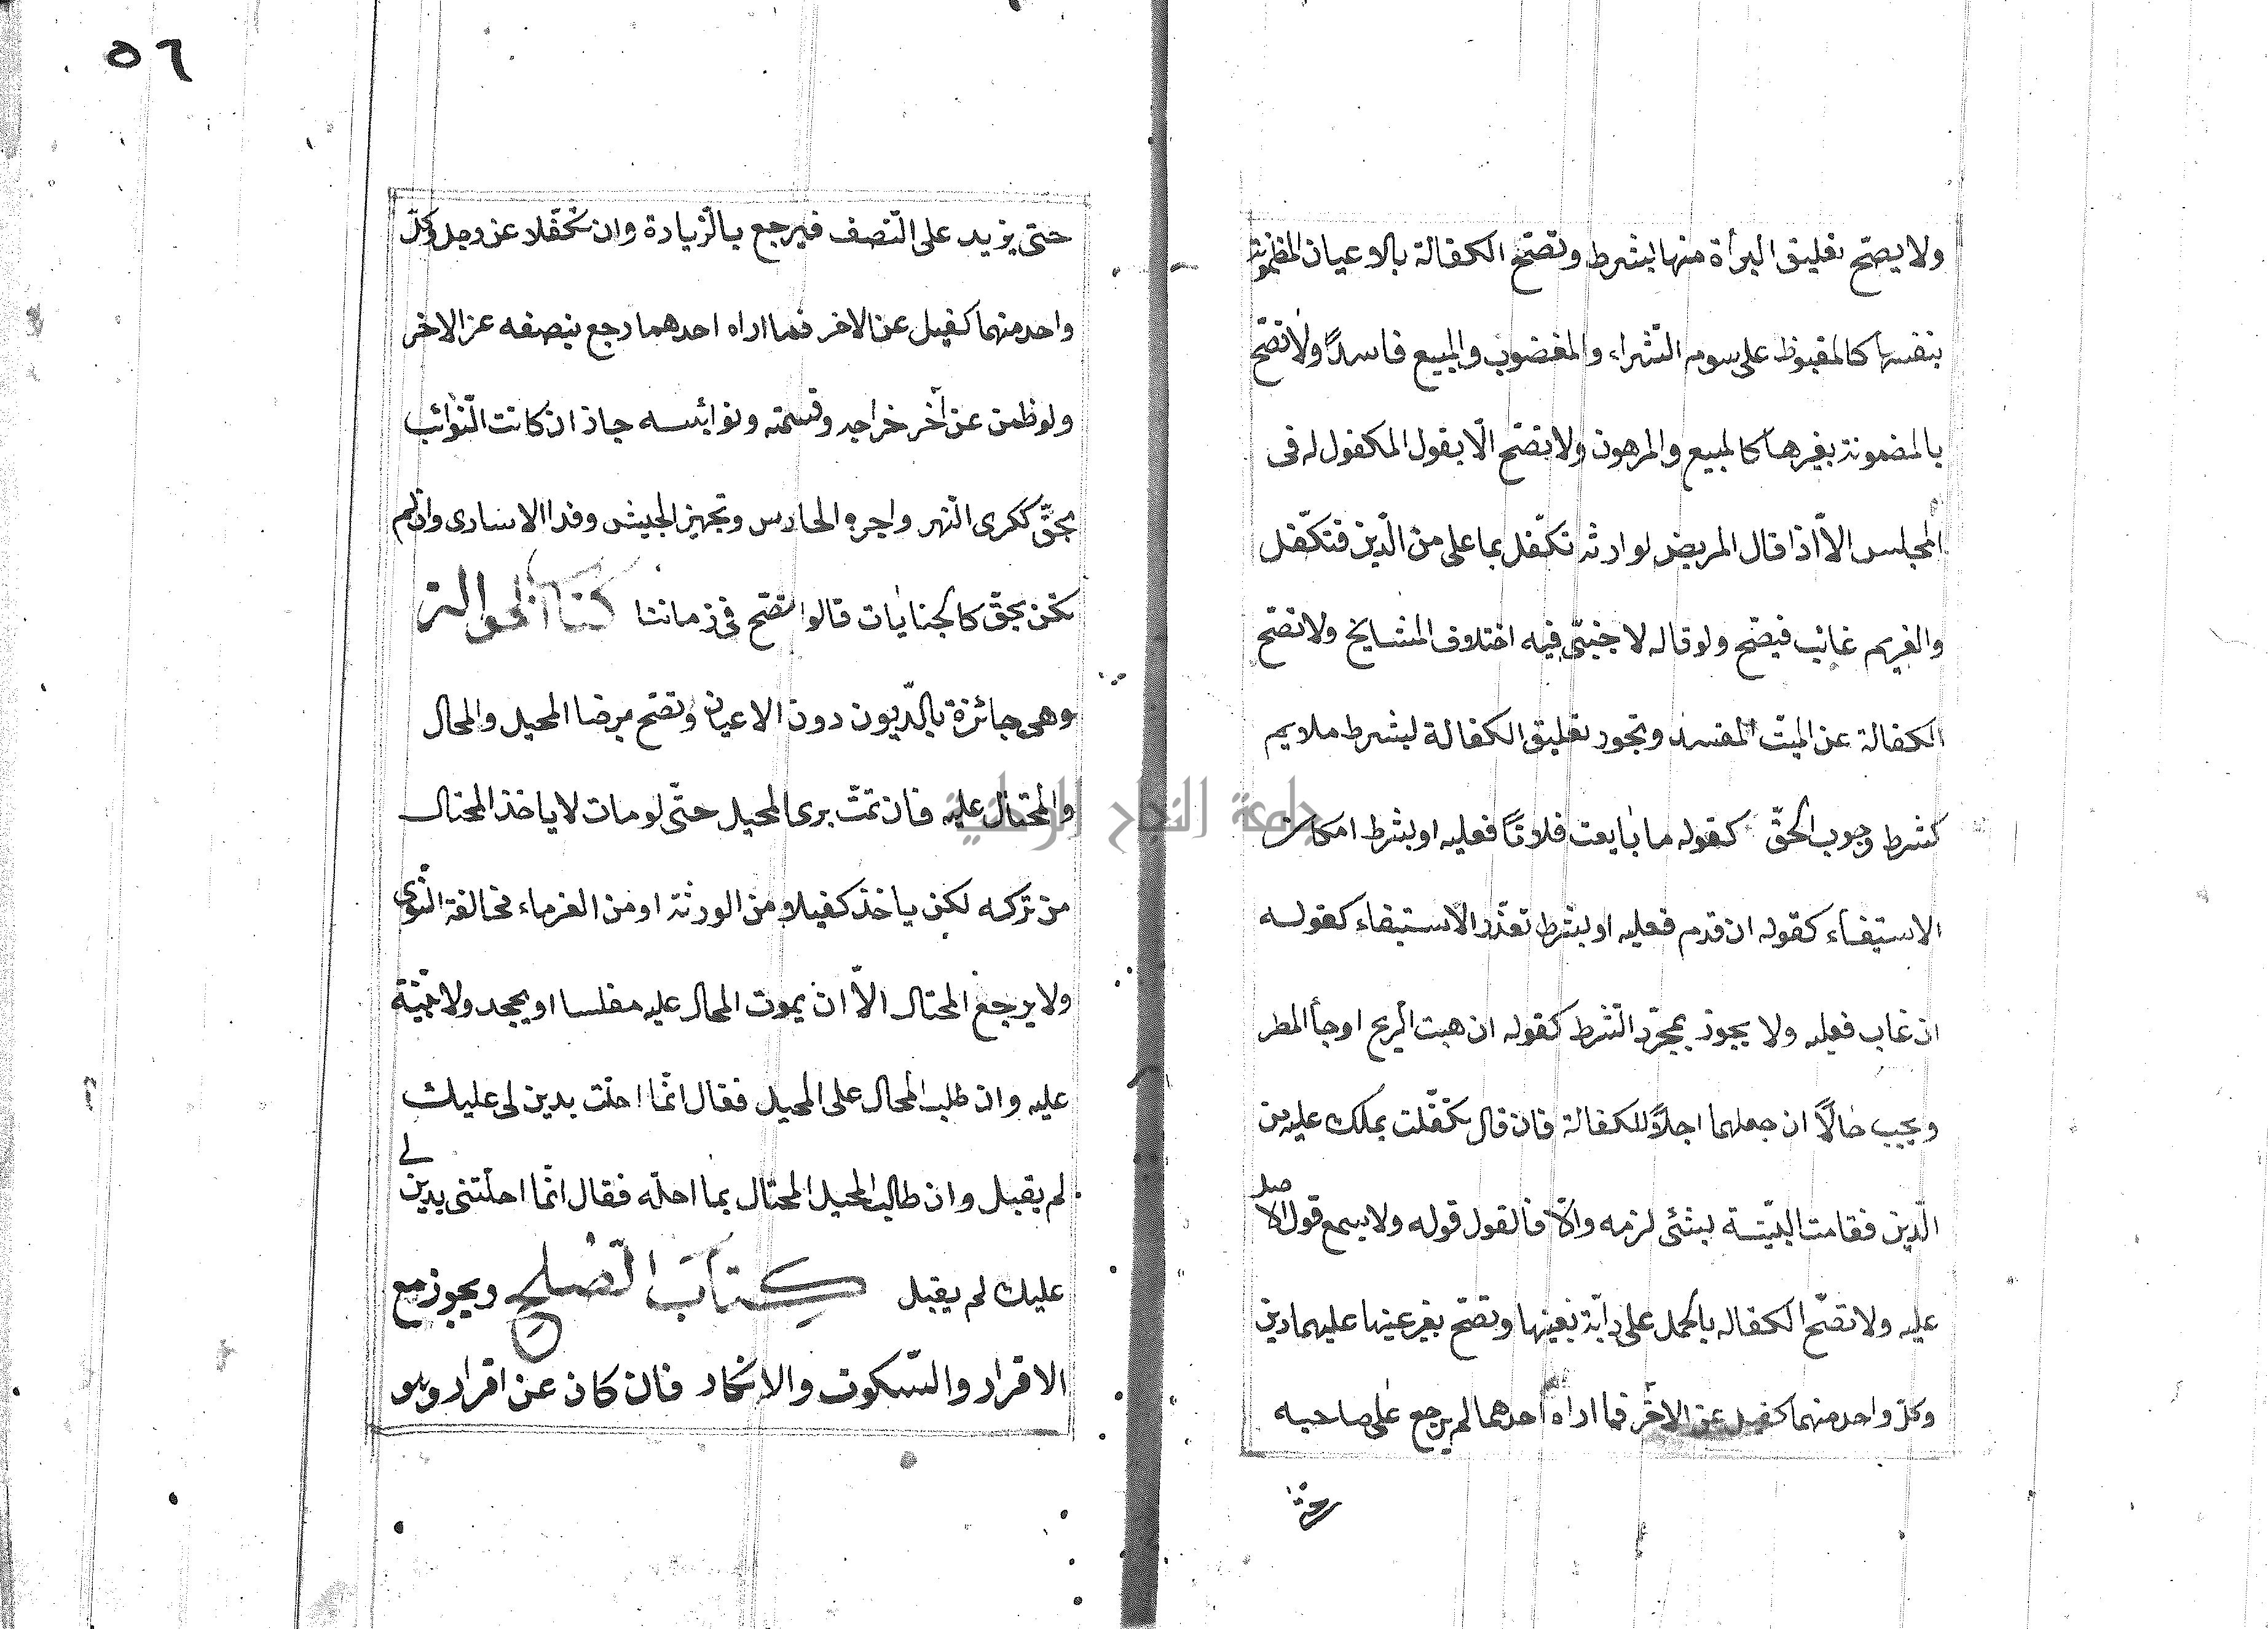 ٥٦
ولا يصحّ تعليق البرأة منها بشرط وتصحّ الكفالة بالاعيان المظمونة
بنفسها كالمقبوظ على سوم الشّراء والمغصوب والمبيع فاسدًا ولا تصحّ
بالمضمونة بغيرها كالمبيع والمرهون ولا تصحّ الّا بقول المكفول له فى
المجلس الاّ اذا قال المريض لوارثه تكفّل بما على من الّدين فتكفّل
والغريم غائب فيصحّ ولو قاله لاجنبىّ فيه اختلاف المشايخ ولا تصحّ
الكفالة عن الميت المفلس وتجوز تعليق الكفالة بشرط ملايم
كشرط وجوب الحقّ كقوله ما بايعت فلانًا فعليه او بشرط امكان
الاستيفاء كقوله ان قدم فعليه او بشرط تعذّر الاستيفاء كقوله
ان غاب فعليه ولا يجوز بمجرّد الشّرط كقوله ان هبت الرّيح او جأ المطر
ويجب حالًا ان جعلهما اجلاً للكفالة فان قال تكفّلت بملك عليه من
الّدين فقامت البيّنة بشئى لزمه والّا فالقول قوله ولا يسمع قول الا
صل
عليه ولا تصحّ الكفاله بالحمل على دابّة بعينها وتصحّ بغير عينها عليهما دين
وكلّ واحد منهما كفيل عن الاخر فما اداه احدهما لم يرجع على صاحبه
حتى يزيد على النّصف فيرجع بالزّيادة وان تكفّلا عن رجل وكلّ
واحد منهما كفيل عن الاخر فما اداه احدهما رجع بنصفه عن الاخر
ولو ظمن عن آخر خراجه وقسمته ونوائبه جاز ان كانت النّوائب
بحقّ ككرى النّهر واجره الحارس وتجهيز الجيش وفدا الاسارى وان لم
تكن بحقّ كالجنايات قالوا تصحّ فى زماننا كتاب الحوالة
وهى جائزة بالدّيون دون الاعيان وتصحّ برضا المحيل والمحال
والمحتال عليه فان تمّت برى المحيل حتّى لو مات لا ياخذ المحتال
من تركه لكن ياخذ كفيلا من الورثة او من الغرماء مخالفة التّوى
ولا يرجع المحتال الاّ ان يموت المحال عليه مفلسا او يجحد ولا بيّنة
عليه وان طلب المحال على المحيل فقال انّما احلت بدين لى عليك
لم يقبل وان طالب المحيل المحتال بما احله فقال انّما احلتنى بدين
لى
عليك لم يقبل كتاب الصّلح ويجوز مع
الاقرار والسّكوت والانكار فان كان عن اقرار وهو
جامعة النجاح الوطنية